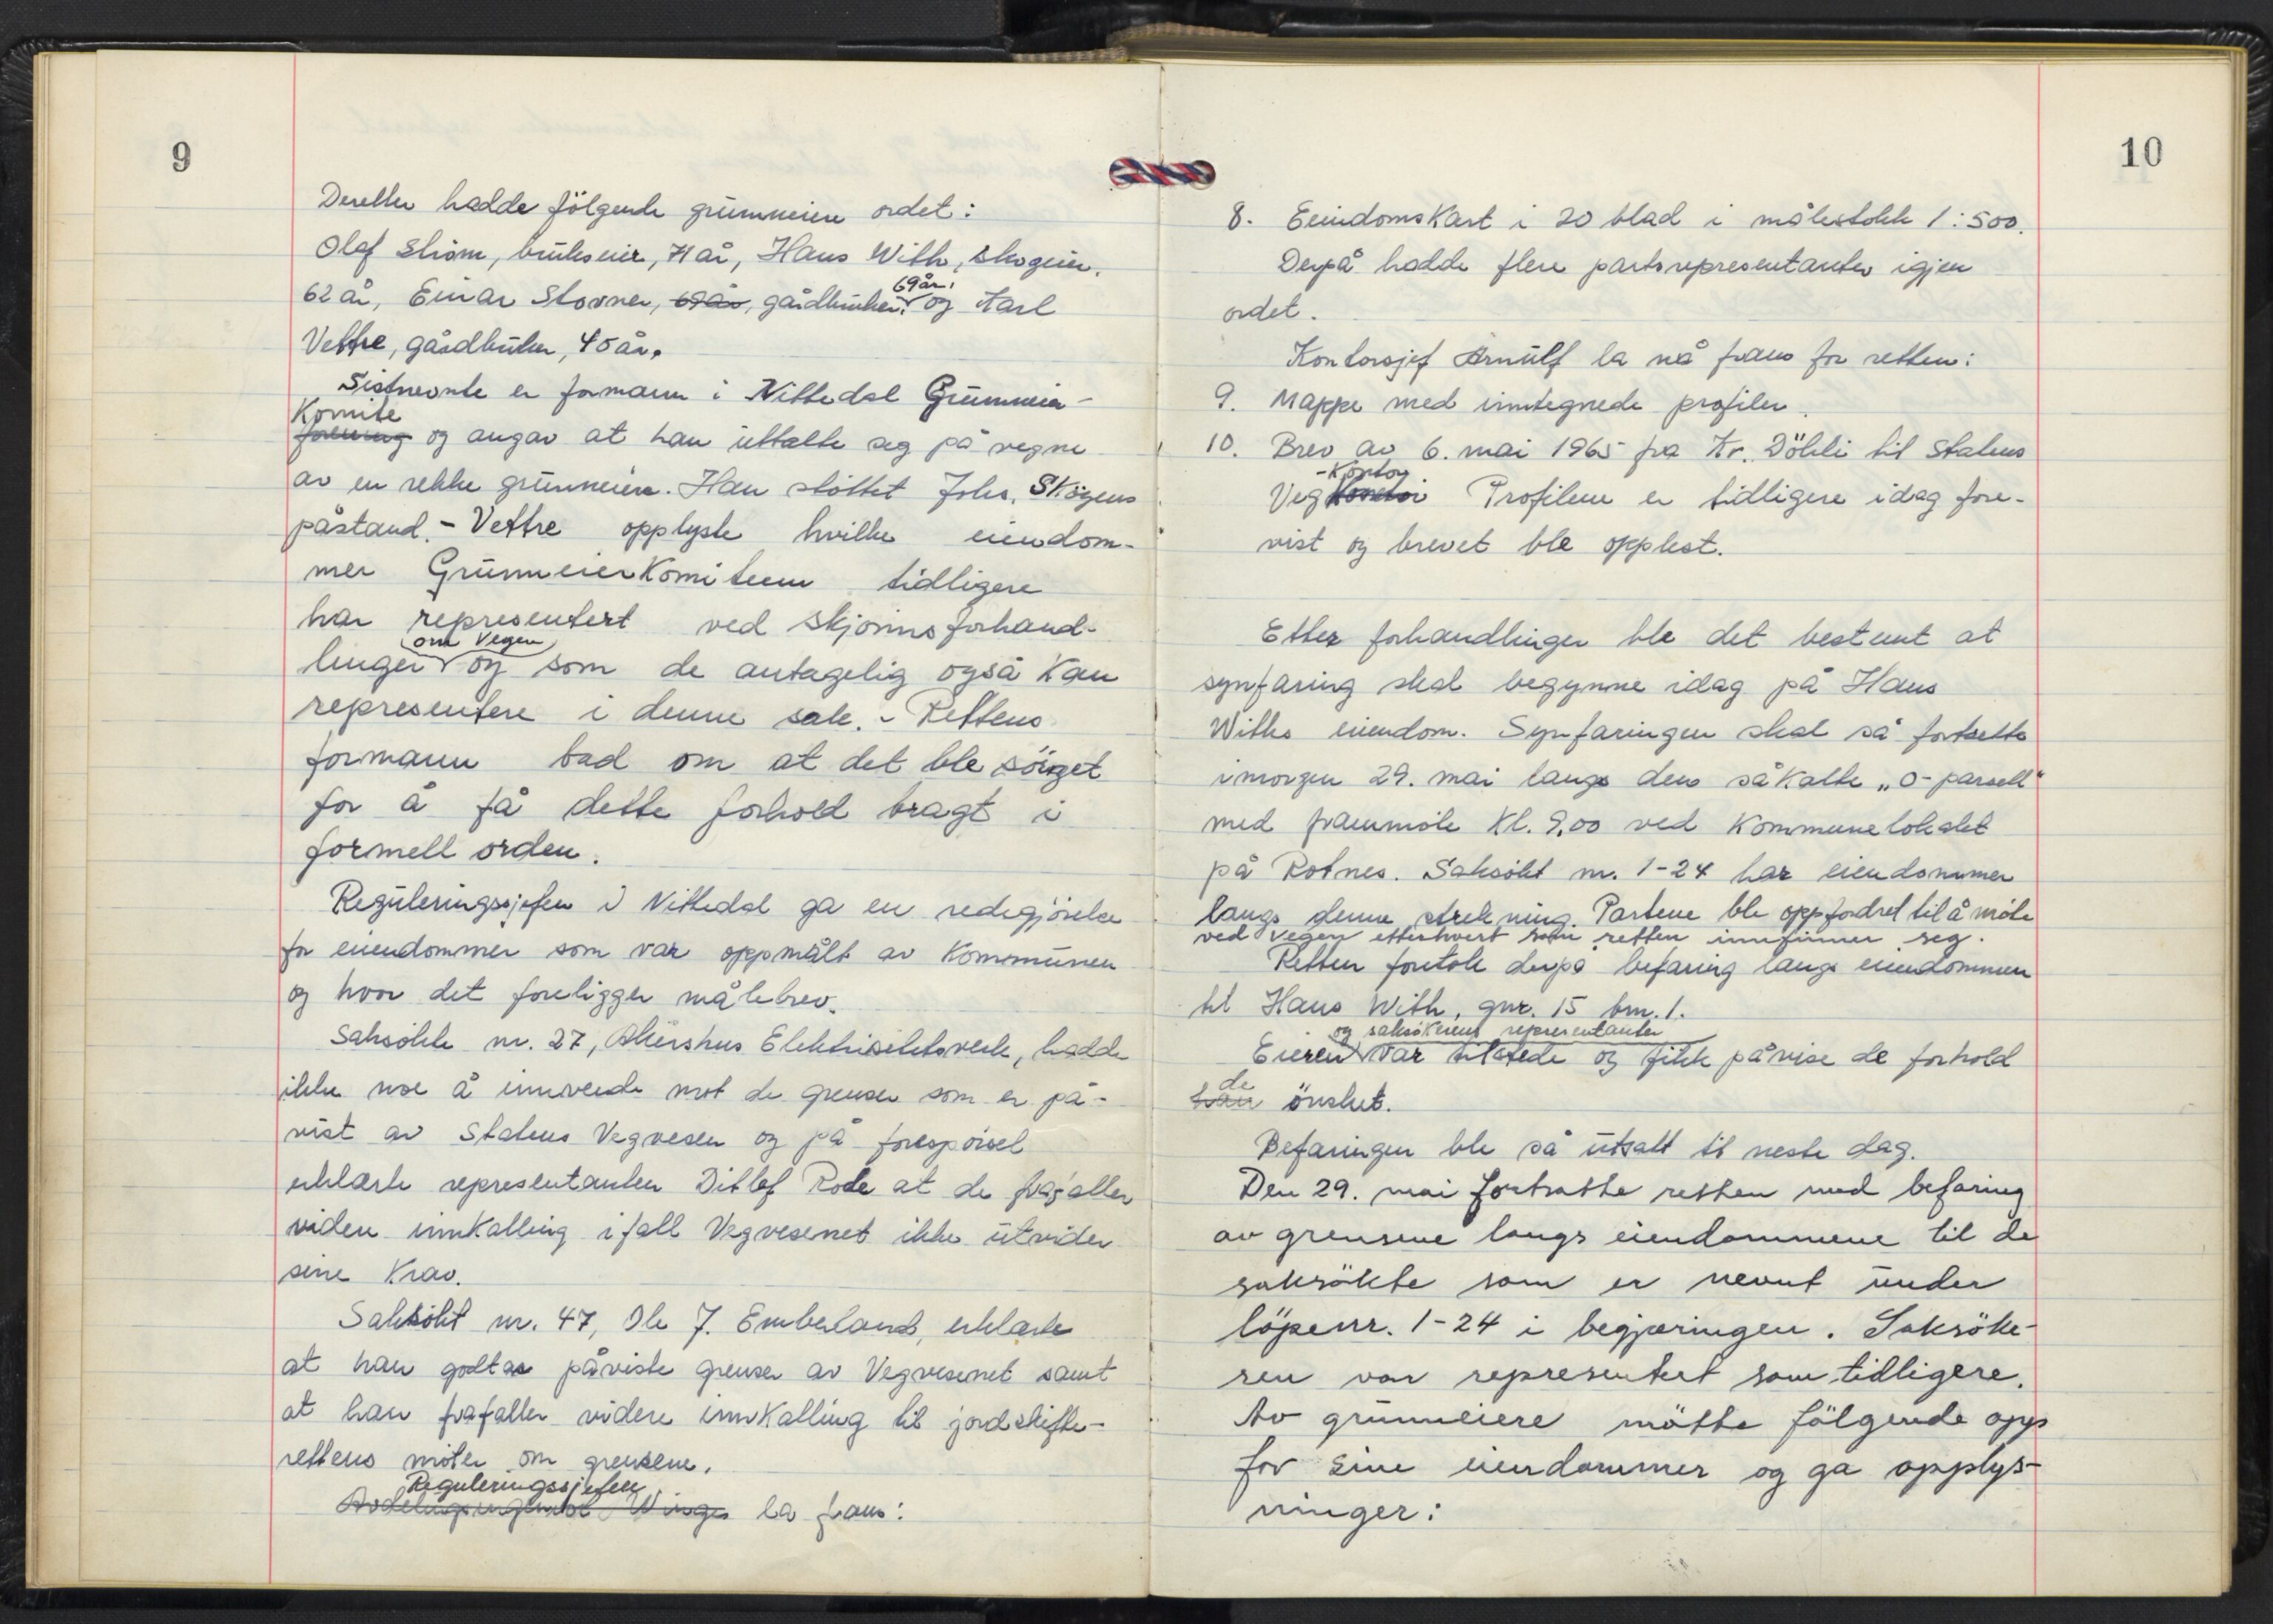 9
Deretter hadde fölgende grunneiere ordet:
Olaf Ström, brukseier, 71 år, Hans With, skogeier,
62 år, Einar Slovner, 69 år, gårdbruker, 69 år, og Karl
Vettre, gårdbruker, 45 år.
Sistnevnte er formann i Nittedal Grunneier-
Komite
forening og angav at han uttalte seg på vegne
av en rekke grunneiere. Han støttet Johs. Skøyens
påstand. - Vettre opplyste hvilke eiendom-
mer Grunneierkomiteen tidligere
har representert ved skjønnsforhand-
linger om Vegen og som de antagelig også kan
representere i denne sak. - Rettens
formann bad om at det ble sörget
for å få dette forhold bragt i
formell orden.
Reguleringssjefen i Nittedal ga en redegjörelse
for eiendommer som var oppmålt av Kommunen
og hvor det foreligger målebrev.
Saksökte nr. 27, Akershus Elektrisitetsverk, hadde
ikke noe å innvende mot de grenser som er på-
vist av Statens Vegvesen og på forespörsel
erklærte representanten Ditlef Rode at de frafaller
viden innkalling ifall Vegvesenet ikke utvider
sine Krav.
Saksökt nr. 47, Ole J. Emberland, erklærte
at han godtar påviste grenser av Vegvesenet samt
at han frafaller videre innkalling til jordskifte-
rettens möter om grensene.
Reguleringssjefen
Avdelingsingeniör Winge la fram:
10
8. Eeindomskart i 20 blad i målestokk 1:500.
Derpå hadde flere partsrepresentanter igjen
ordet.
Kontorsjef Arnulf la nå fram for retten:
9. Mappe med inntegnede profiler.
10. Brev av 6. mai 1965 fra Kr. Döhli til Statens
-Kontor
Veg Profilene er tidligere idag fore-
vist og brevet ble opplest.
Etter forhandlinger ble det bestemt at
synfaring skal begynne idag på Hans
Withs eiendom. Synfaringen skal så fortsette
imorgen 29. mai langs den såkalte „O-parsell"
med frammöte kl. 9,00 ved Kommunelokalet
på Rotnes. Saksökt nr. 1-24 har eiendommer
langs denne strekning. Partene ble oppfordret til å möte
ved Vegen etterhvert som retten innfinner seg.
Retten foretok derpå befaring langs eiendommen
til Hans With, gnr. 15 bnr. 1.
og saksökerens representanter
Eieren var tilstede og fikk påvise de forhold
de
han önsket.
Befaringen ble så utsatt til neste dag.
Den 29. mai fortsatte retten med befaring
av grensene langs eiendommene til de
saksökte som er nevnt under
löpenr. 1-24 i begjæringen. Saksöke-
ren var representert som tidligere.
Av grunneiere mötte fölgende opp
for sine eiendommer og ga opplys-
ninger: